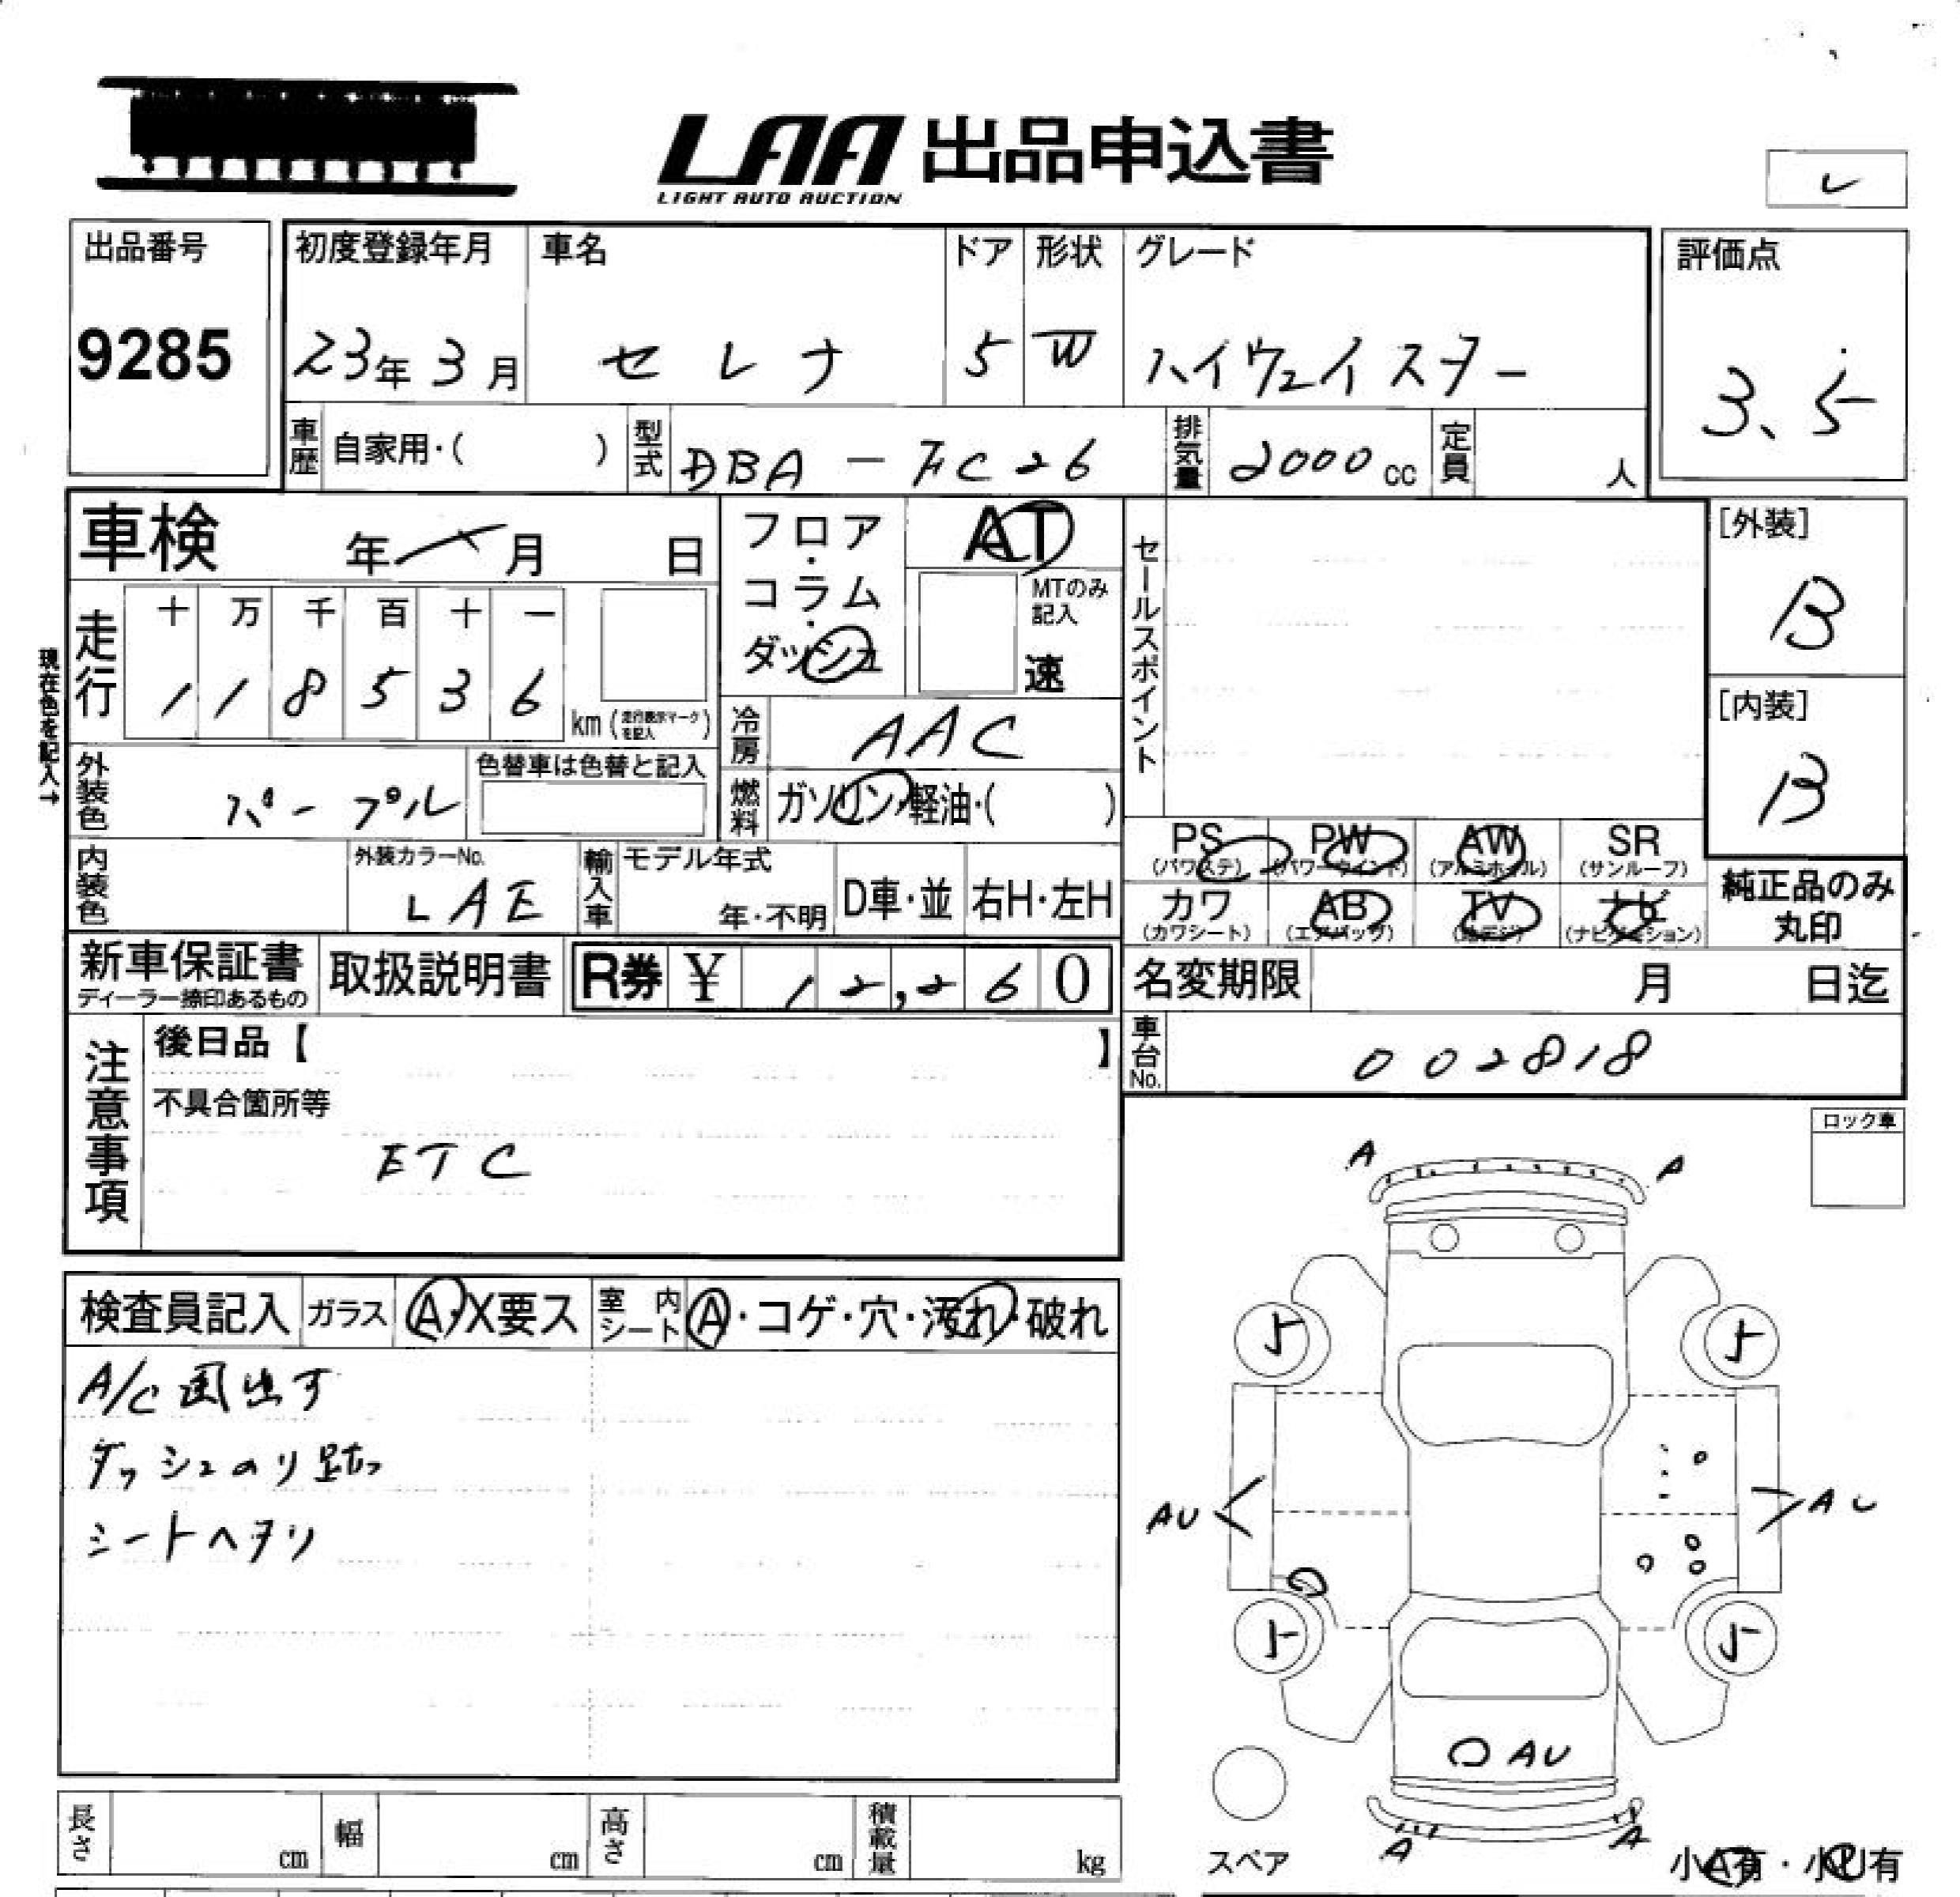 LAA 出品申込書
LIGHT AUTO AUCTION
出品番号
9285
初度登録年月
23年 3月
車名
セレナ
ドア
5
形状
W
グレード
ハイウェイスター
評価点
3.5
車歴 自家用・( )
型式 DBA - FC26
排気量 2000 cc
定員 人
車検 年 月 日
フロア・コラム・ダッシュ
AT
MTのみ記入
速
セールスポイント
[外装]
B
[内装]
B
現在色を記入→
走行
十 万 千 百 十 一
1 1 8 5 3 6 km (走行表示マークを記入)
冷房 AAC
外装色 パープル
色替車は色替と記入
燃料 ガソリン・軽油・( )
内装色
外装カラーNo.
LAE
輸入車
モデル年式
年・不明
D車・並
右H・左H
PS (パワステ)
PW (パワーウインド)
AW (アルミホイル)
SR (サンルーフ)
カワ (カワシート)
AB (エアバッグ)
TV (地デジ)
ナビ (ナビゲーション)
純正品のみ丸印
新車保証書
ディーラー捺印あるもの
取扱説明書
R券 ¥ 12,260
名変期限 月 日迄
車台No. 002818
注意事項
後日品【 】
不具合箇所等
ETC
ロック車
検査員記入
ガラス A・X要ス
室内シート A・コゲ・穴・汚れ・破れ
A/C風出ず
ダッシュのり跡
シートヘタリ
A A
5 5
AU AU
5 5
AU
A A
スペア
小A有・小U有
長さ cm
幅 cm
高さ cm
積載量 kg